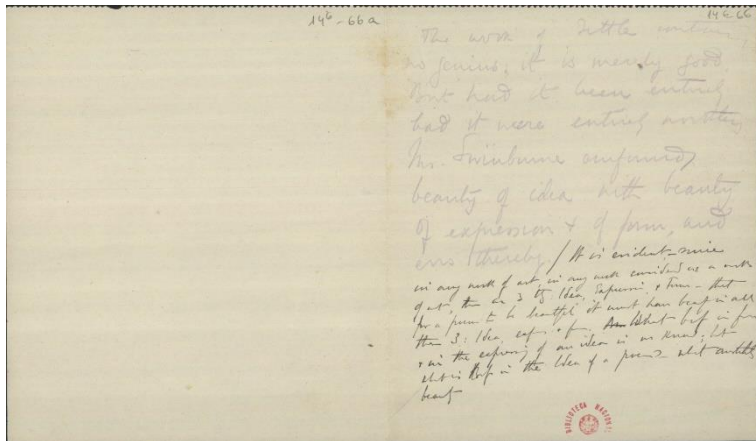 14E-66a
14E-66
The work of Settle contains
no genius; it is merely good
But had it been entirely
bad it were entirely
Mr. Swinburne confounds
beauty of idea with beauty
of expression & of form, and
errs thereby. / It is evident – since
in any work of art, in any work considered as a work
of art, there are 3 Idea, Expression, & Form – that
for a poem to be beautiful it must have beauty in all
these 3: Idea, exp. & f. What in
& in the expressing of an idea is we know; but
what is in the Idea of a poem – what constitutes
beauty
BIBLIOTECA NACIONAL